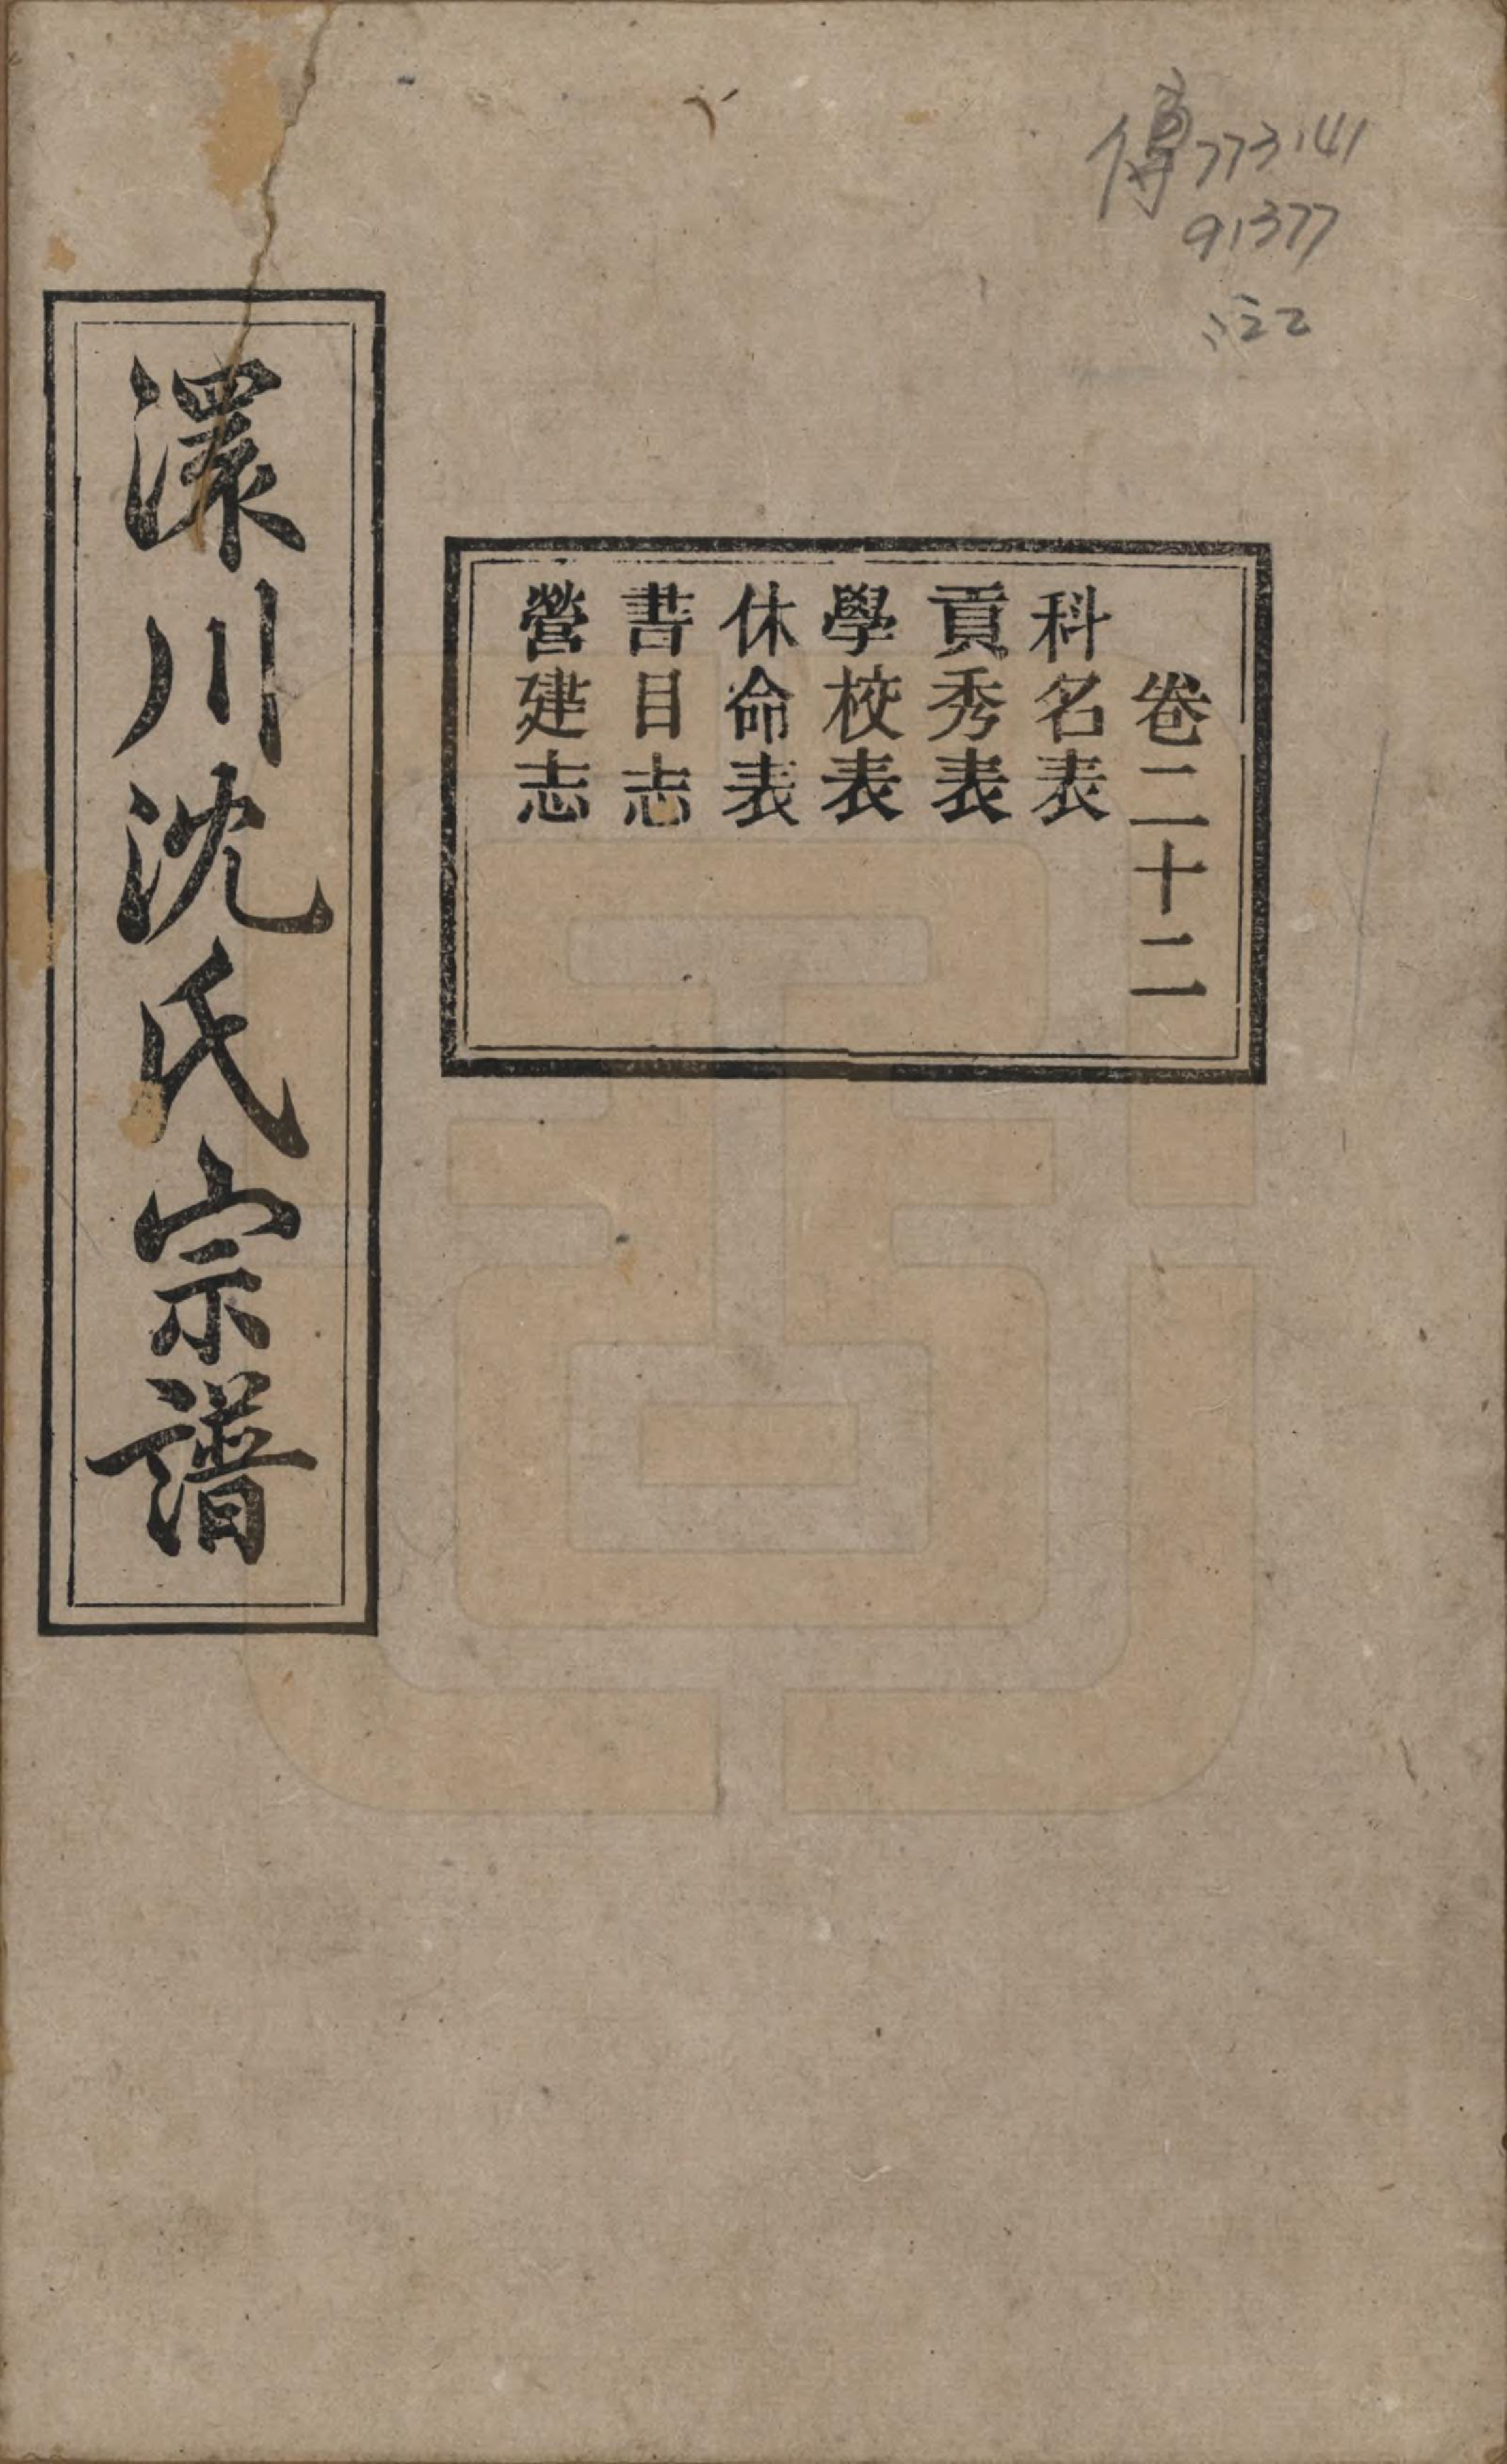 傳773.141
91377
:22
卷二十二
科名表
貢秀表
學校表
休命表
書目志
營建志
澴川沈氏宗譜